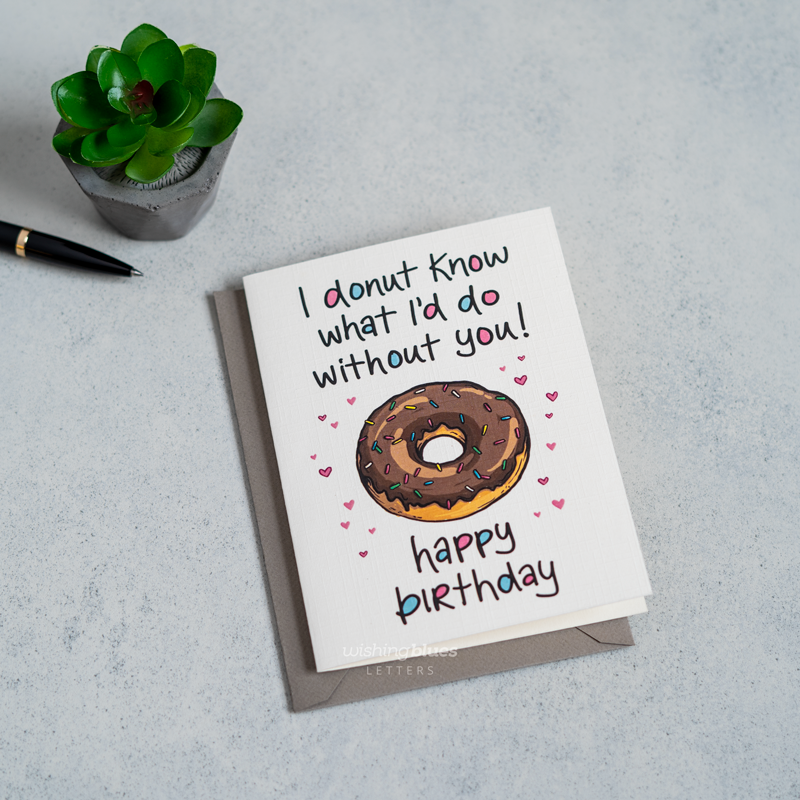 I donut Know
what I'd do
without you!
happy
birthday
wishing blues
LETTERS